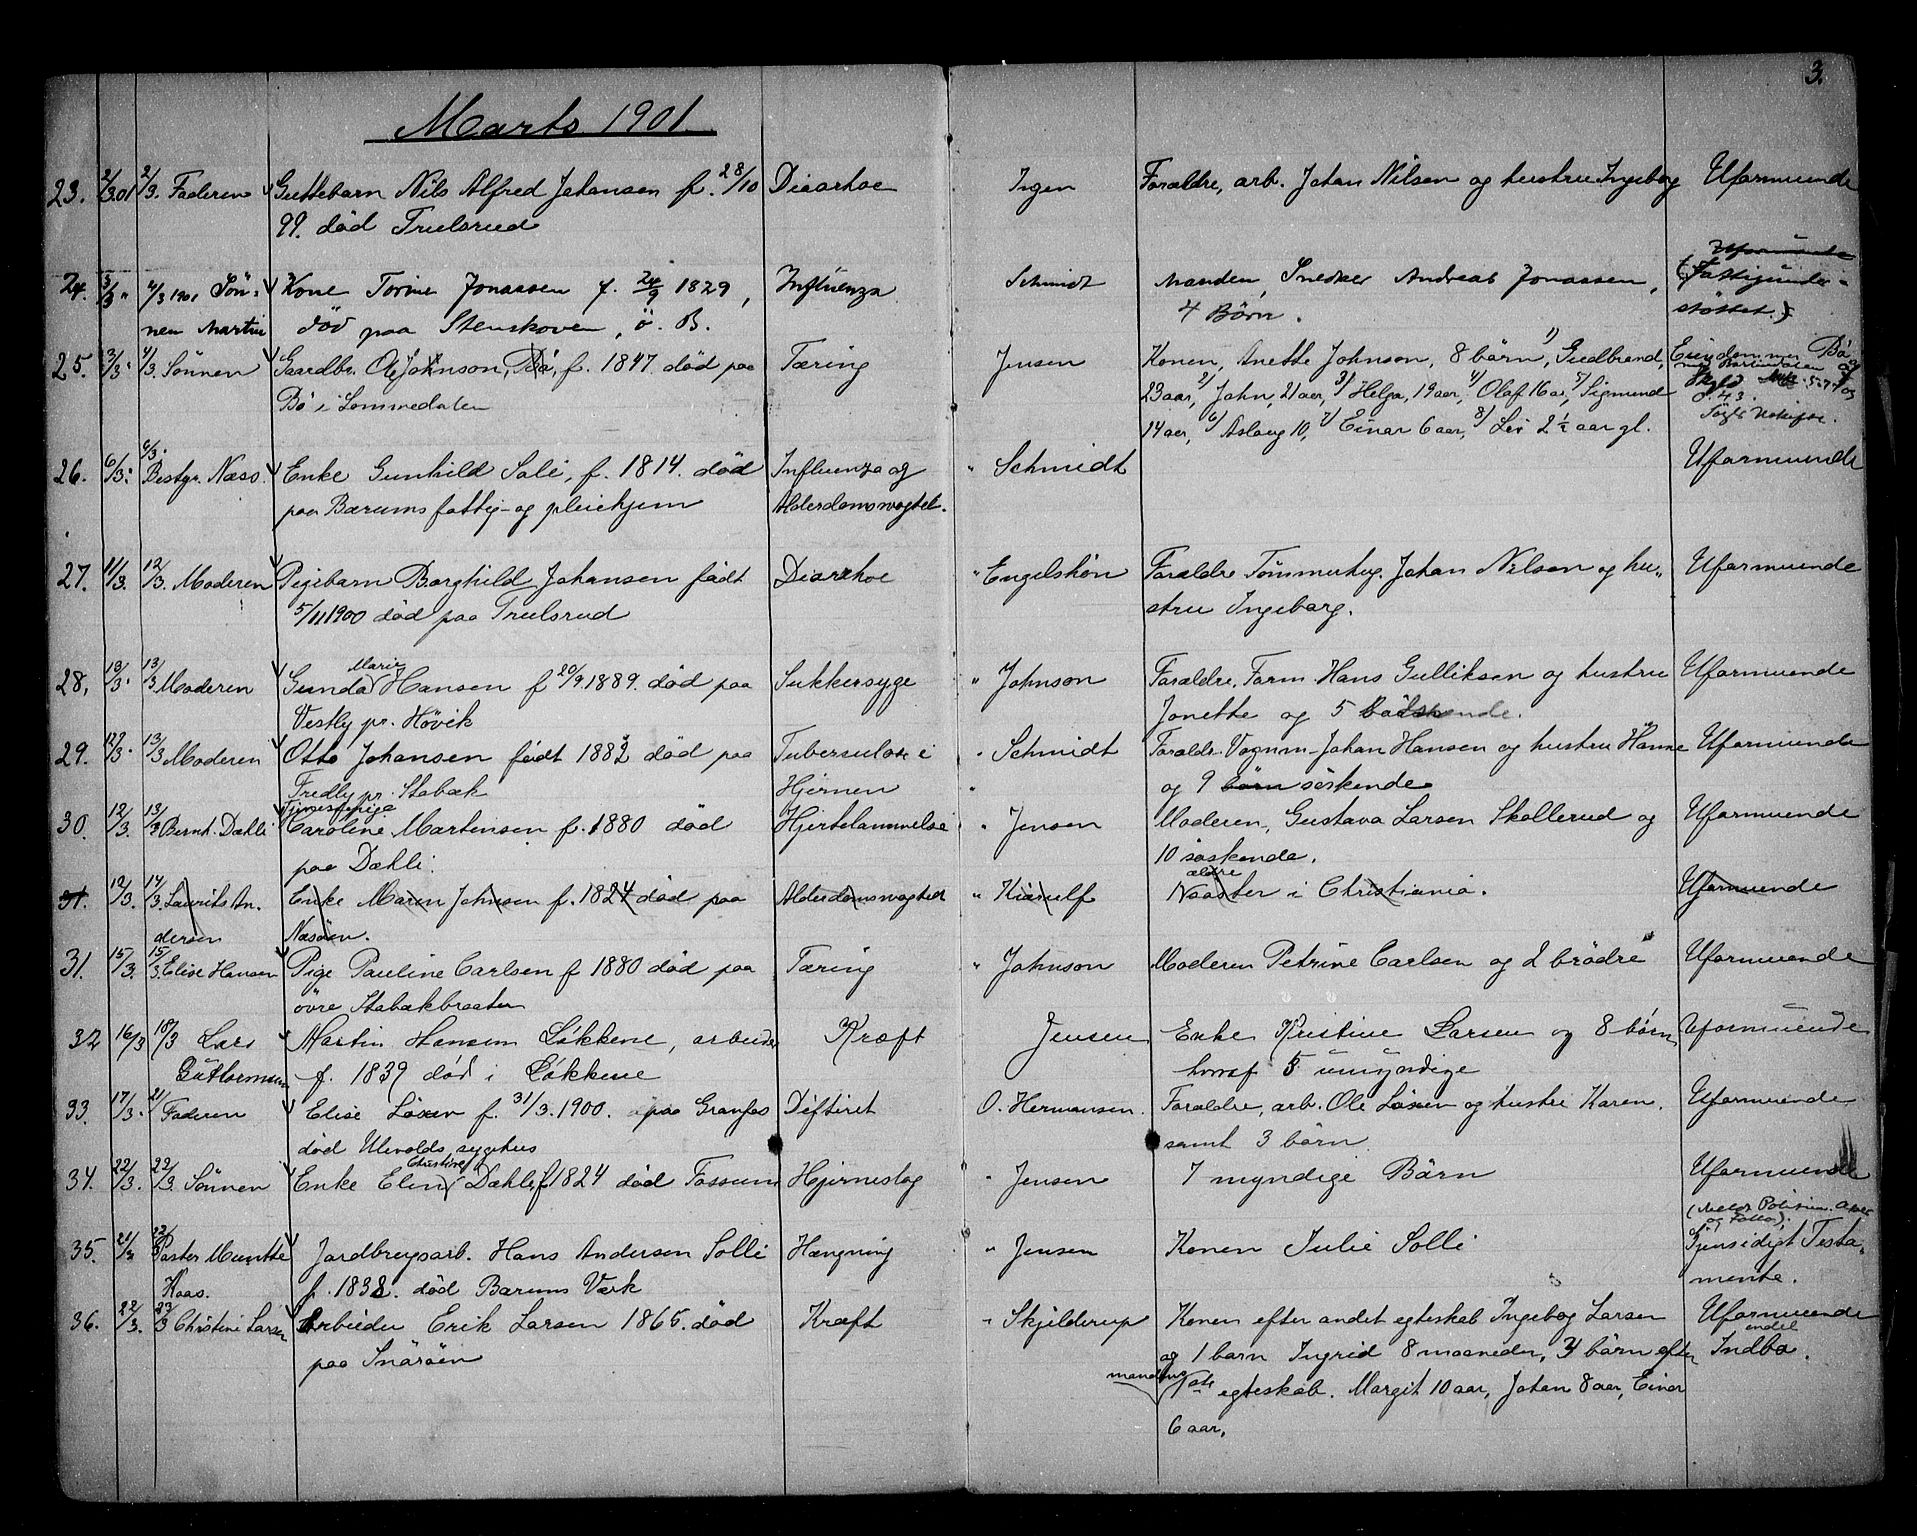 3.
Marts 1901.
23. 2/3.01 2/3. Faderen Guttebarn Nils Alfred Johansen f. 28/10 Diaarhoe Ingen Forældre, arb. Johan Nilsen og hustru Ingeborg Uformuende
99. død Trulsrud
24. 3/3 " 4/3 1901 Søn- Kone Torine Jonassen f. 24/9 1829, Influenza Schmidt Manden, Snedker Andreas Jonassen, Uformuende (Fattigunder-
nen Martin død paa Stenskoven, ö. B. 4 Børn. støttet.)
25. 3/3. 4/3. Sønnen Gaardbr. Ole Johnson, Bø, f. 1847. død paa Tæring Jensen Konen, Anette Johnson, 8 børn, 1) Gudbrand, Eiendommen Bø
Bø i Lommedalen 23 aar, 2) John, 21 aar, 3) Helga, 19 aar, 4) Olaf 16 aar, 5) Sigmund
14 aar, 6) Aslaug 10, 7) Einar 6 aar, 8) Leif 2½ aar gl.
26. 6/3. 6/3. Bestyr. Næss. Enke Gunhild Sali, f. 1814. død Influenza og " Schmidt Uformuende
paa Bærums fattig- og pleiehjem Alderdomsvagtel.
27. 11/3. 12/3. Moderen Pigebarn Borghild Johansen født Diarrhoe " Engelshøn Forældre Tømmerhug. Johan Nilsen og hu- Uformuende
5/11 1900 død paa Trulsrud stru Ingeborg.
28. 13/3. 13/3 Moderen Gunda Marie Hansen f 20/9 1889. død paa Sukkersyge " Johnson Forældre, Form. Hans Gulliksen og hustru Uformuende
Vestly pr. Høvik Jonette og 5 södskende.
29. 12/3. 13/3 Moderen Otto Johansen født 1882 død paa Tuberculose i " Schmidt Forældr. Vognm. Johan Hansen og hustru Hanne Uformuende
Fredly pr. Stabæk Hjernen " og 9 børn søskende
30. 12/3. 13/3 Bernt. Dæhli Tjenestepige Caroline Martinsen f. 1880 død Hjertelammelse " Jensen Moderen, Gustava Larsen Skollerud og Uformuende
paa Dæhli. 10 søskende.
31. 12/3. 14/3. Laurits An- Enke Maren Johnsen f. 1824 død paa Alderdomsvagtelt " Kiærulf ældre Naaster i Christiania. Uformuende
dersen Næsøen.
31. 15/3. 15/3. Elise Hansen Pige Pauline Carlsen f 1880 død paa Tæring " Johnson Moderen Petrine Carlsen og 2 brødre Uformuende
øvre Stabækbraaten
32 16/3 18/3 Lars Martin Hansen Løkkene, arbeider Kræft Jensen Enke Kristine Larsen og 8 børn Uformuende
Guttormsen f. 1839 død i Løkkene hvoraf 5 umyndige
33. 17/3. 21/ Faderen Elise Løxen f. 31/3. 1900. paa Granfos Diftirit O. Hermansen. Forældre, arb. Ole Løxen og hustru Karen. Uformuende
død Ulevolds sygehus samt 3 børn
34. 22/3. 22/3. Sønnen Enke Elin Christine Dæhli, f 1824 død Fossum Hjerneslag " Jensen 7 myndige Børn Uformuende
35. 21/3 22/3 Pastor Munthe Jordbrugsarb. Hans Andersen Solli Hængning " Jensen Konen Julie Solli Gjensidigt Testa-
Kaas. f. 1838. død Bærums Værk mente.
36. 22/3. 23/3 Christine Larsen Arbeider Erik Larsen 1865. død Kræft " Skjelderup Konen efter andet egteskab Ingeborg Larsen Uformuende
paa Snarøen og 1 barn Ingrid 8 maaneder, 3 børn efter endel Indbo.
mandens 1ste egteskab. Margit 10 aar, Johan 8 aar, Einar
6 aar.